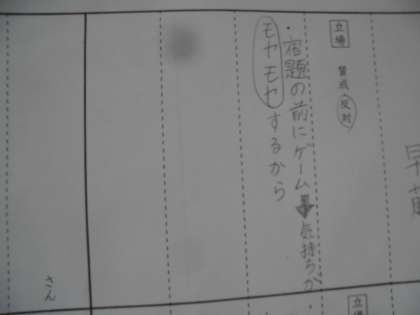 立場
賛成・反対
・宿題の前にゲーム➡気持ちが
モヤモヤするから
さん
立場